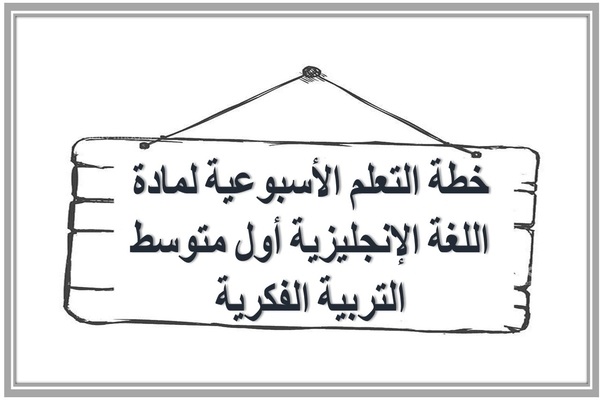 خطة التعلم الأسبوعية لمادة
اللغة الإنجليزية أول متوسط
التربية الفكرية